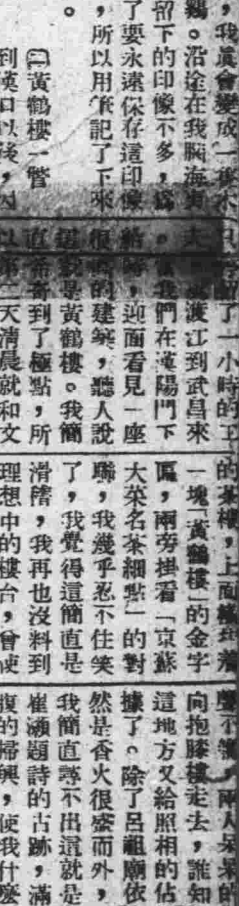 ，我真會變成一隻木
鷄。沿途在我腦海裏
留下的印像不多，爲
了要永遠保存這印像
，所以用筆記了下來
。
㈡黃鶴樓一瞥
到漢口以後，因
只了一小時的工
夫渡江到武昌來
。當我們在漢陽門下
時，迎面看見一座
很的建築，聽人說
這就是黃鶴樓。我簡
直希奇到了極點，所
以第二天清晨就和文
的茶樓，上面橫着
一塊「黃鶴樓」的金字
匾，兩旁掛看「京蘇
大菜名茶細點」的對
聯，我幾乎忍不住笑
了，我覺得這簡直是
滑稽，我再也沒料到
理想中的樓台，曾使
聲不響，兩人呆呆的
向抱膝樓走去，誰知
這地方又給照相的佔
據了。除了呂祖廟依
然是香火很盛而外，
我簡直尋不出這就是
崔灝題詩的古跡，滿
腹的掃興，使我什麼